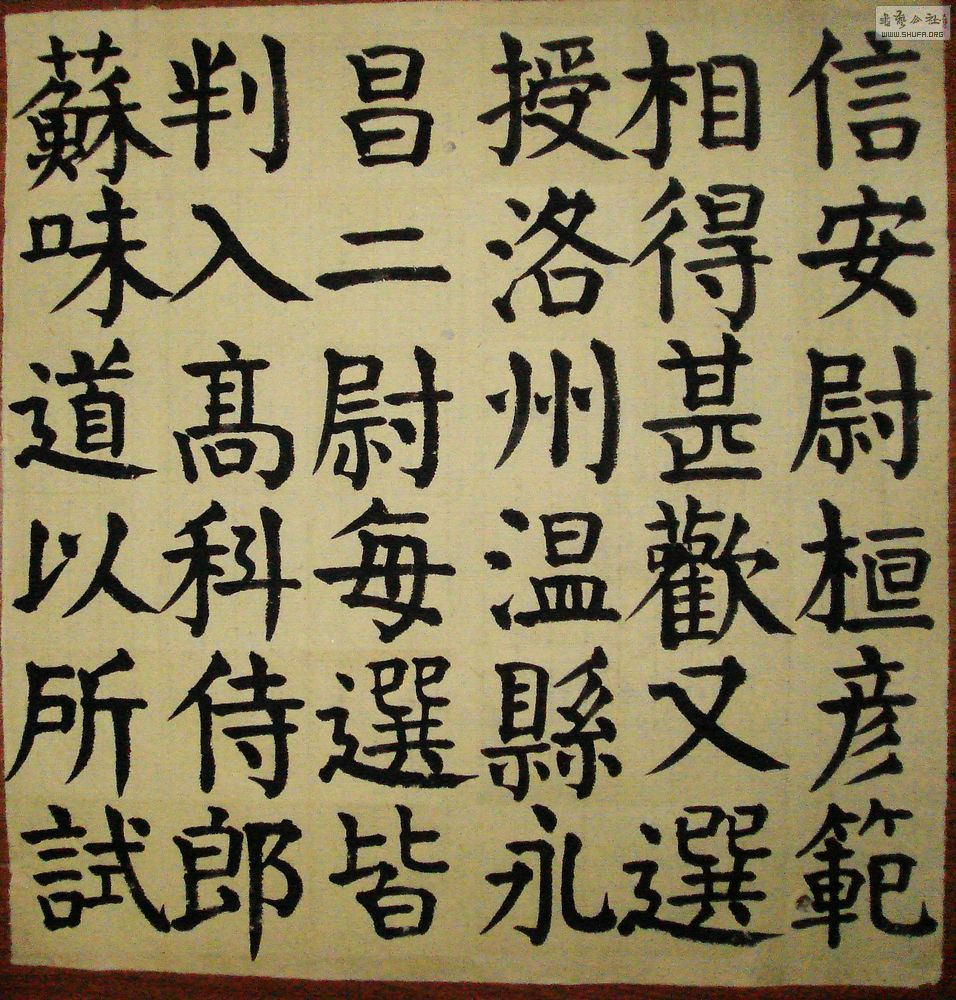 信安尉桓彦範
相得甚歡又選
授洛州温縣永
昌二尉每選皆
判入髙科侍郎
蘇味道以所試
WWW.SHUFA.ORG